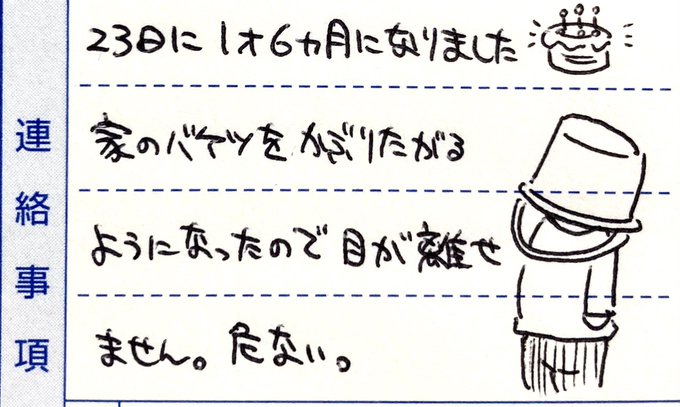 連絡事項
23日に1才6ヵ月になりました
家のバケツをかぶりたがる
ようになったので目が離せ
ません。危ない。